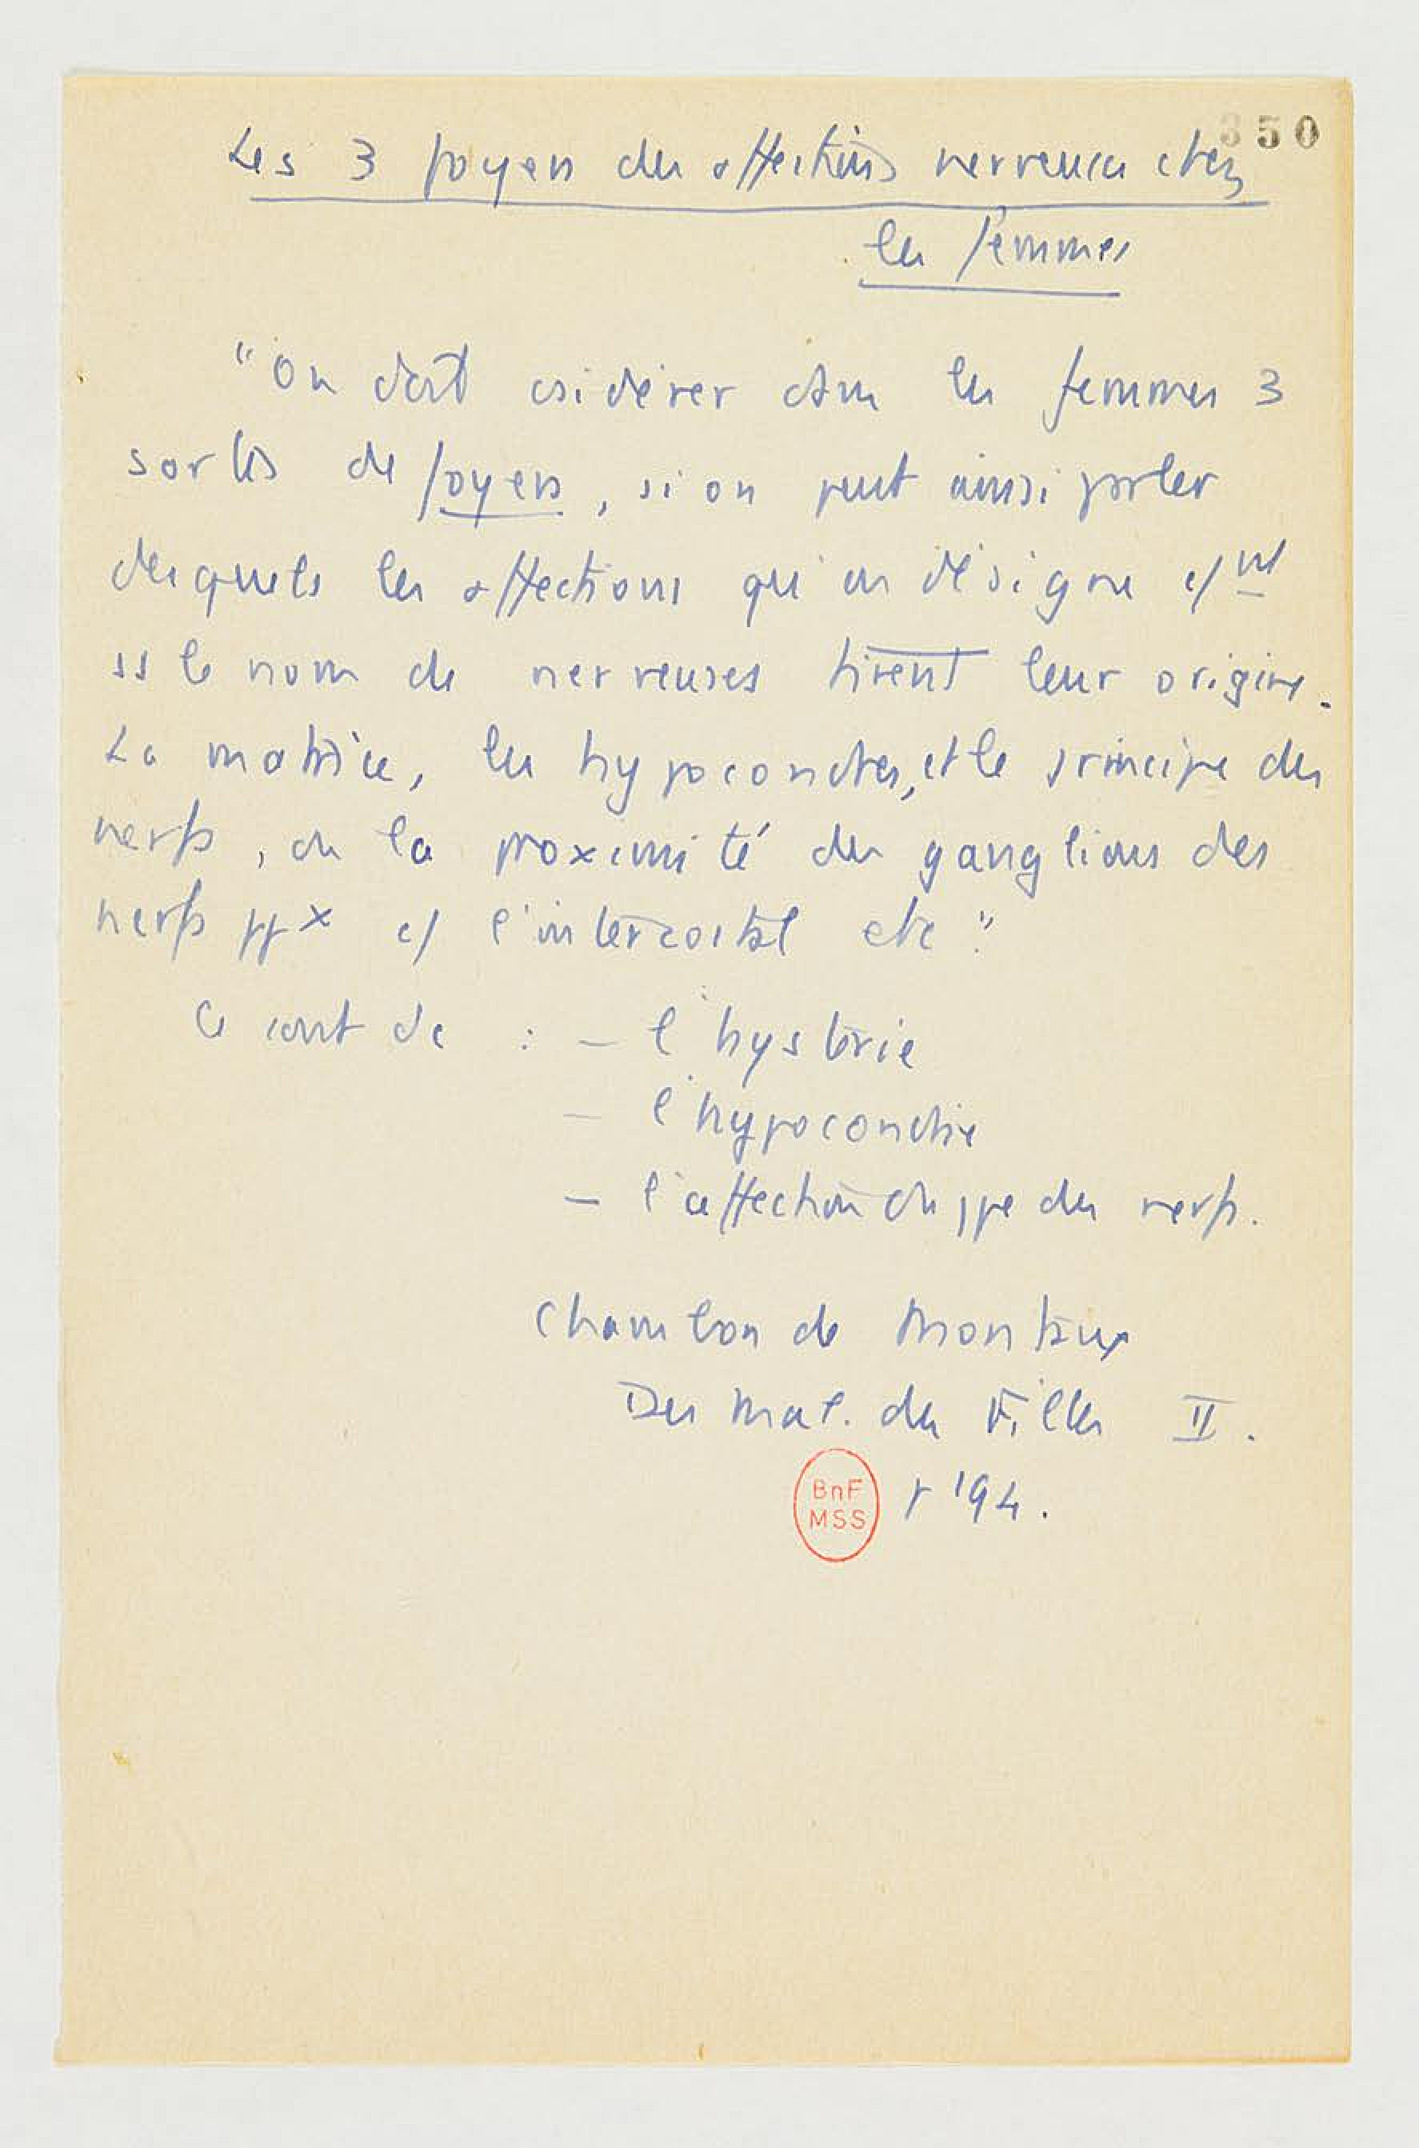 350
Les 3 foyers des affections nerveuses chez
les femmes
"On doit csidérer chez les femmes 3
sortes de foyers, si on peut ainsi parler
desquels les affections qu'on désigne c/nt
ss le nom de nerveuses tirent leur origine.
La matrice, les hypocondres, et le principe des
nerfs, ou la proximité des ganglions des
nerfs ppx c/ l'intercostal etc"
Ce sont dc : – l'hystérie
– l'hypocondrie
– l'affection du ppe des nerfs.
Chambon de Montaux
Des mal. des Filles II.
p 194.
BnF
MSS